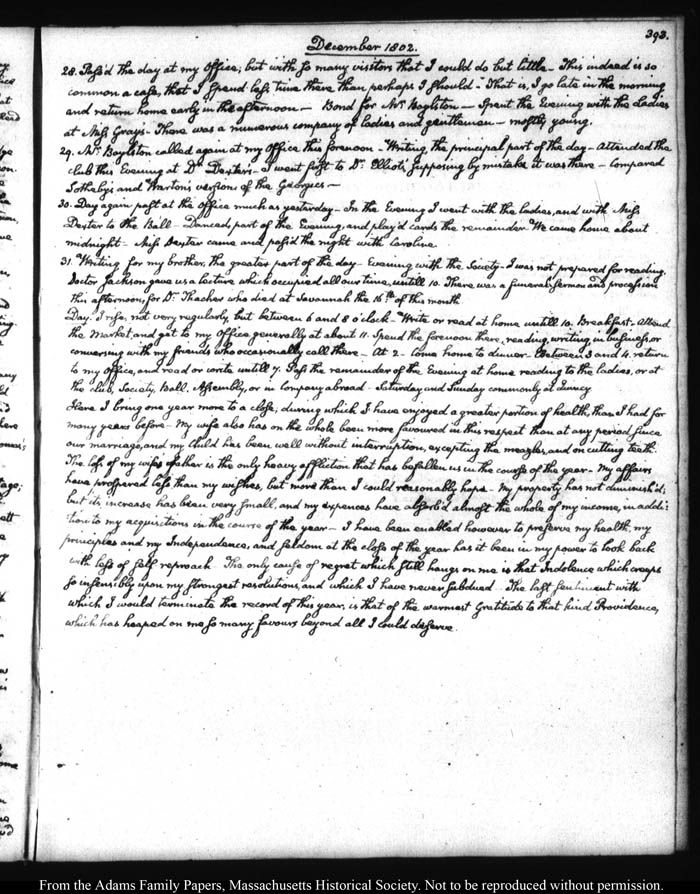 393.
December 1802.
28. Pass'd the day at my Office; but with so many visitors that I could do but little— This indeed is so
common a case, that I spend less time there than perhaps I should— That is, I go late in the morning
and return home early in the afternoon— Bond for Mr. Boylston— Spent the Evening with the Ladies
at Miss Gray's. There was a numerous company of ladies and gentlemen— mostly young.
29. Mr. Boylston called again at my Office this forenoon— Writing, the principal part of the day— Attended the
club this Evening at Dr. Dexter's— I went first to Dr. Elliot's supposing by mistake it was there— Compared
Sotheby's and Warton's versions of the Georgics—
30. Day again past at the Office much as yesterday— In the Evening I went with the ladies, and with Miss
Dexter to the Ball— Danced, part of the Evening, and play'd cards the remainder. We came home about
midnight— Miss Dexter came and pass'd the night with Caroline.
31. Writing for my brother, the greater part of the day— Evening with the Society— I was not prepared for reading.
Doctor Jackson gave us a lecture which occupied all our time, untill 10. There was a funeral sermon and procession
this afternoon, for Dr. Thacher who died at Savannah the 16th of this month
Day. I rise, not very regularly, but between 6 and 8 o'clock— Write or read at home untill 10. Breakfast. Attend
the Market, and get to my Office generally at about 11. Spend the forenoon there, reading, writing, in business, or
conversing with my friends who occasionally call there— At 2. Come home to dinner. Between 3 and 4. return
to my office, and read or write untill 7. Pass the remainder of the Evening at home reading to the ladies, or at
the club, Society, Ball, Assembly, or in Company abroad— Saturday and Sunday commonly at Quincy
Here I bring one year more to a close, during which I have enjoyed a greater portion of health, than I had for
many years before— My wife also has on the whole been more favoured in this respect than at any period since
our marriage, and my Child has been well without interruption, excepting the measles, and on cutting teeth.
The loss of my wife's father is the only heavy affliction that has befallen us in the course of the year— My affairs
have prospered less than my wishes, but more than I could reasonably hope— My property has not diminish'd;
but its increase has been very small, and my expences have absorb'd almost the whole of my income, in addi-
tion to my acquisitions in the course of the year— I have been enabled however to preserve my health, my
principles and my Independence, and seldom at the close of the year has it been in my power to look back
with less of self reproach— The only cause of regret which still hangs on me is that Indolence which creeps
so insensibly upon my strongest resolutions, and which I have never subdued— The last sentiment with
which I would terminate the record of this year, is that of the warmest Gratitude to that kind Providence,
which has heaped on me so many favours beyond all I could deserve.
From the Adams Family Papers, Massachusetts Historical Society. Not to be reproduced without permission.